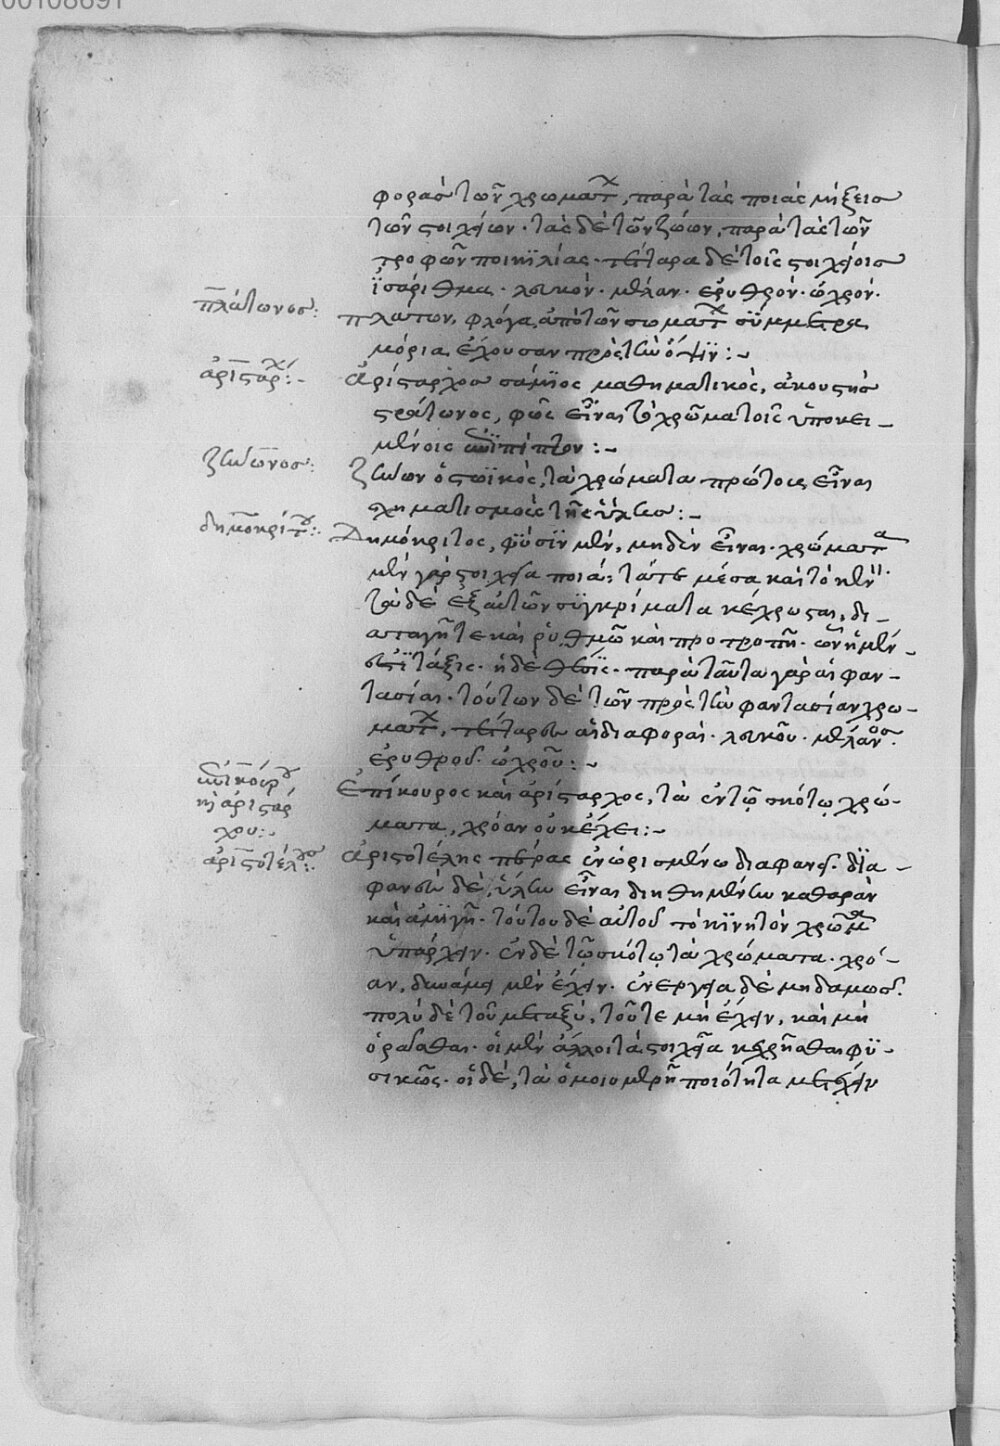 00108691
φορὰς τῶν χρωμάτων, παρὰ τὰς ποιὰς μίξεις
τῶν στοιχείων· τὰς δὲ τῶν ζώων, παρὰ τὰς τῶν
τροφῶν ποικιλίας· τέτταρα δὲ τοῖς στοιχείοις
ἰσάριθμα· λευκόν· μέλαν· ἐρυθρόν· ὠχρόν·
πλάτωνος:
πλάτων, φλόγα ἀπὸ τῶν σωμάτων σύμμετρα
μόρια ἔχουσαν πρὸς τὴν ὄψιν:-
ἀριστάρχ:-
Ἀρίσταρχος σάμιος μαθηματικὸς, ἀκουστὴς
στράτωνος, φῶς εἶναι τὸ χρῶμα τοῖς ὑποκει-
μένοις ἐπιπίπτον:-
ζήνωνος:
ζήνων ὁ στωϊκὸς, τὰ χρώματα πρώτους εἶναι
σχηματισμοὺς τῆς ὕλης:-
δημοκρίτου:-
Δημόκριτος, φύσιν μὲν, μηδὲν εἶναι χρῶμα· τὰ
μὲν γὰρ στοιχεῖα ποιά· τά τε μέσα καὶ τὸ κενὸν·
τὰ δὲ ἐξ αὐτῶν συγκρίματα κέχρωσται, δι-
αταγῆ τε καὶ ῥυθμῶ καὶ προτροπῆ· ὧν ἡ μέν
ἐστι τάξις· ἡ δὲ θέσις· παρὰ ταῦτα γὰρ αἱ φαν-
τασίαι· τούτων δὲ τῶν πρὸς τὴν φαντασίαν χρω-
μάτων, τέτταρες αἱ διαφοραί· λευκοῦ· μέλανος·
ἐρυθροῦ· ὠχροῦ:-
ἐπικούρου
κὴ ἀριστάρ
χου:-
Ἐπίκουρος καὶ ἀρίσταρχος, τὰ ἐν τῷ σκότῳ χρώ-
ματα, χρόαν οὐκ ἔχει:-
ἀριστοτέλους:-
Ἀριστοτέλης πέρας ἐνωρισμένω διαφανεῖ· δια-
φανὲς δὲ, ὕλην εἶναι διηθημένην καθαρὰν
καὶ ἀμιγῆ· τούτου δὲ αὐτοῦ τὸ κινητὸν χρῶμα
ὑπάρχειν· ἐν δὲ τῷ σκότῳ τὰ χρώματα· χρό-
αν, δυνάμει μὲν ἔχειν· ἐνεργείᾳ δὲ μηδαμῶς.
πολὺ δὲ τοῦ μεταξύ, τοῦτε μὴ ἔχειν, καὶ μὴ
ὁρᾶσθαι· οἱ μὲν ἄλλοι τὰ στοιχεῖα κεχρῆσθαι φυ-
σικῶς· οἱ δὲ, τὰ ὁμοιομερῆ ποιότητα μετέχειν